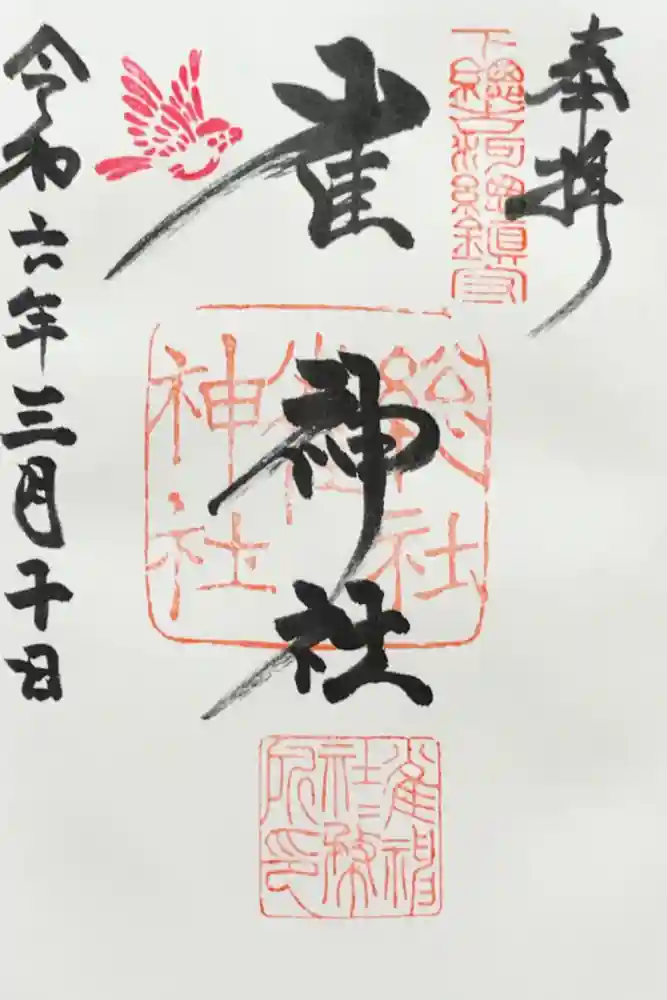 奉拝
雀神社
総社
雀
神社
雀神
社務
所印
令和六年三月十日